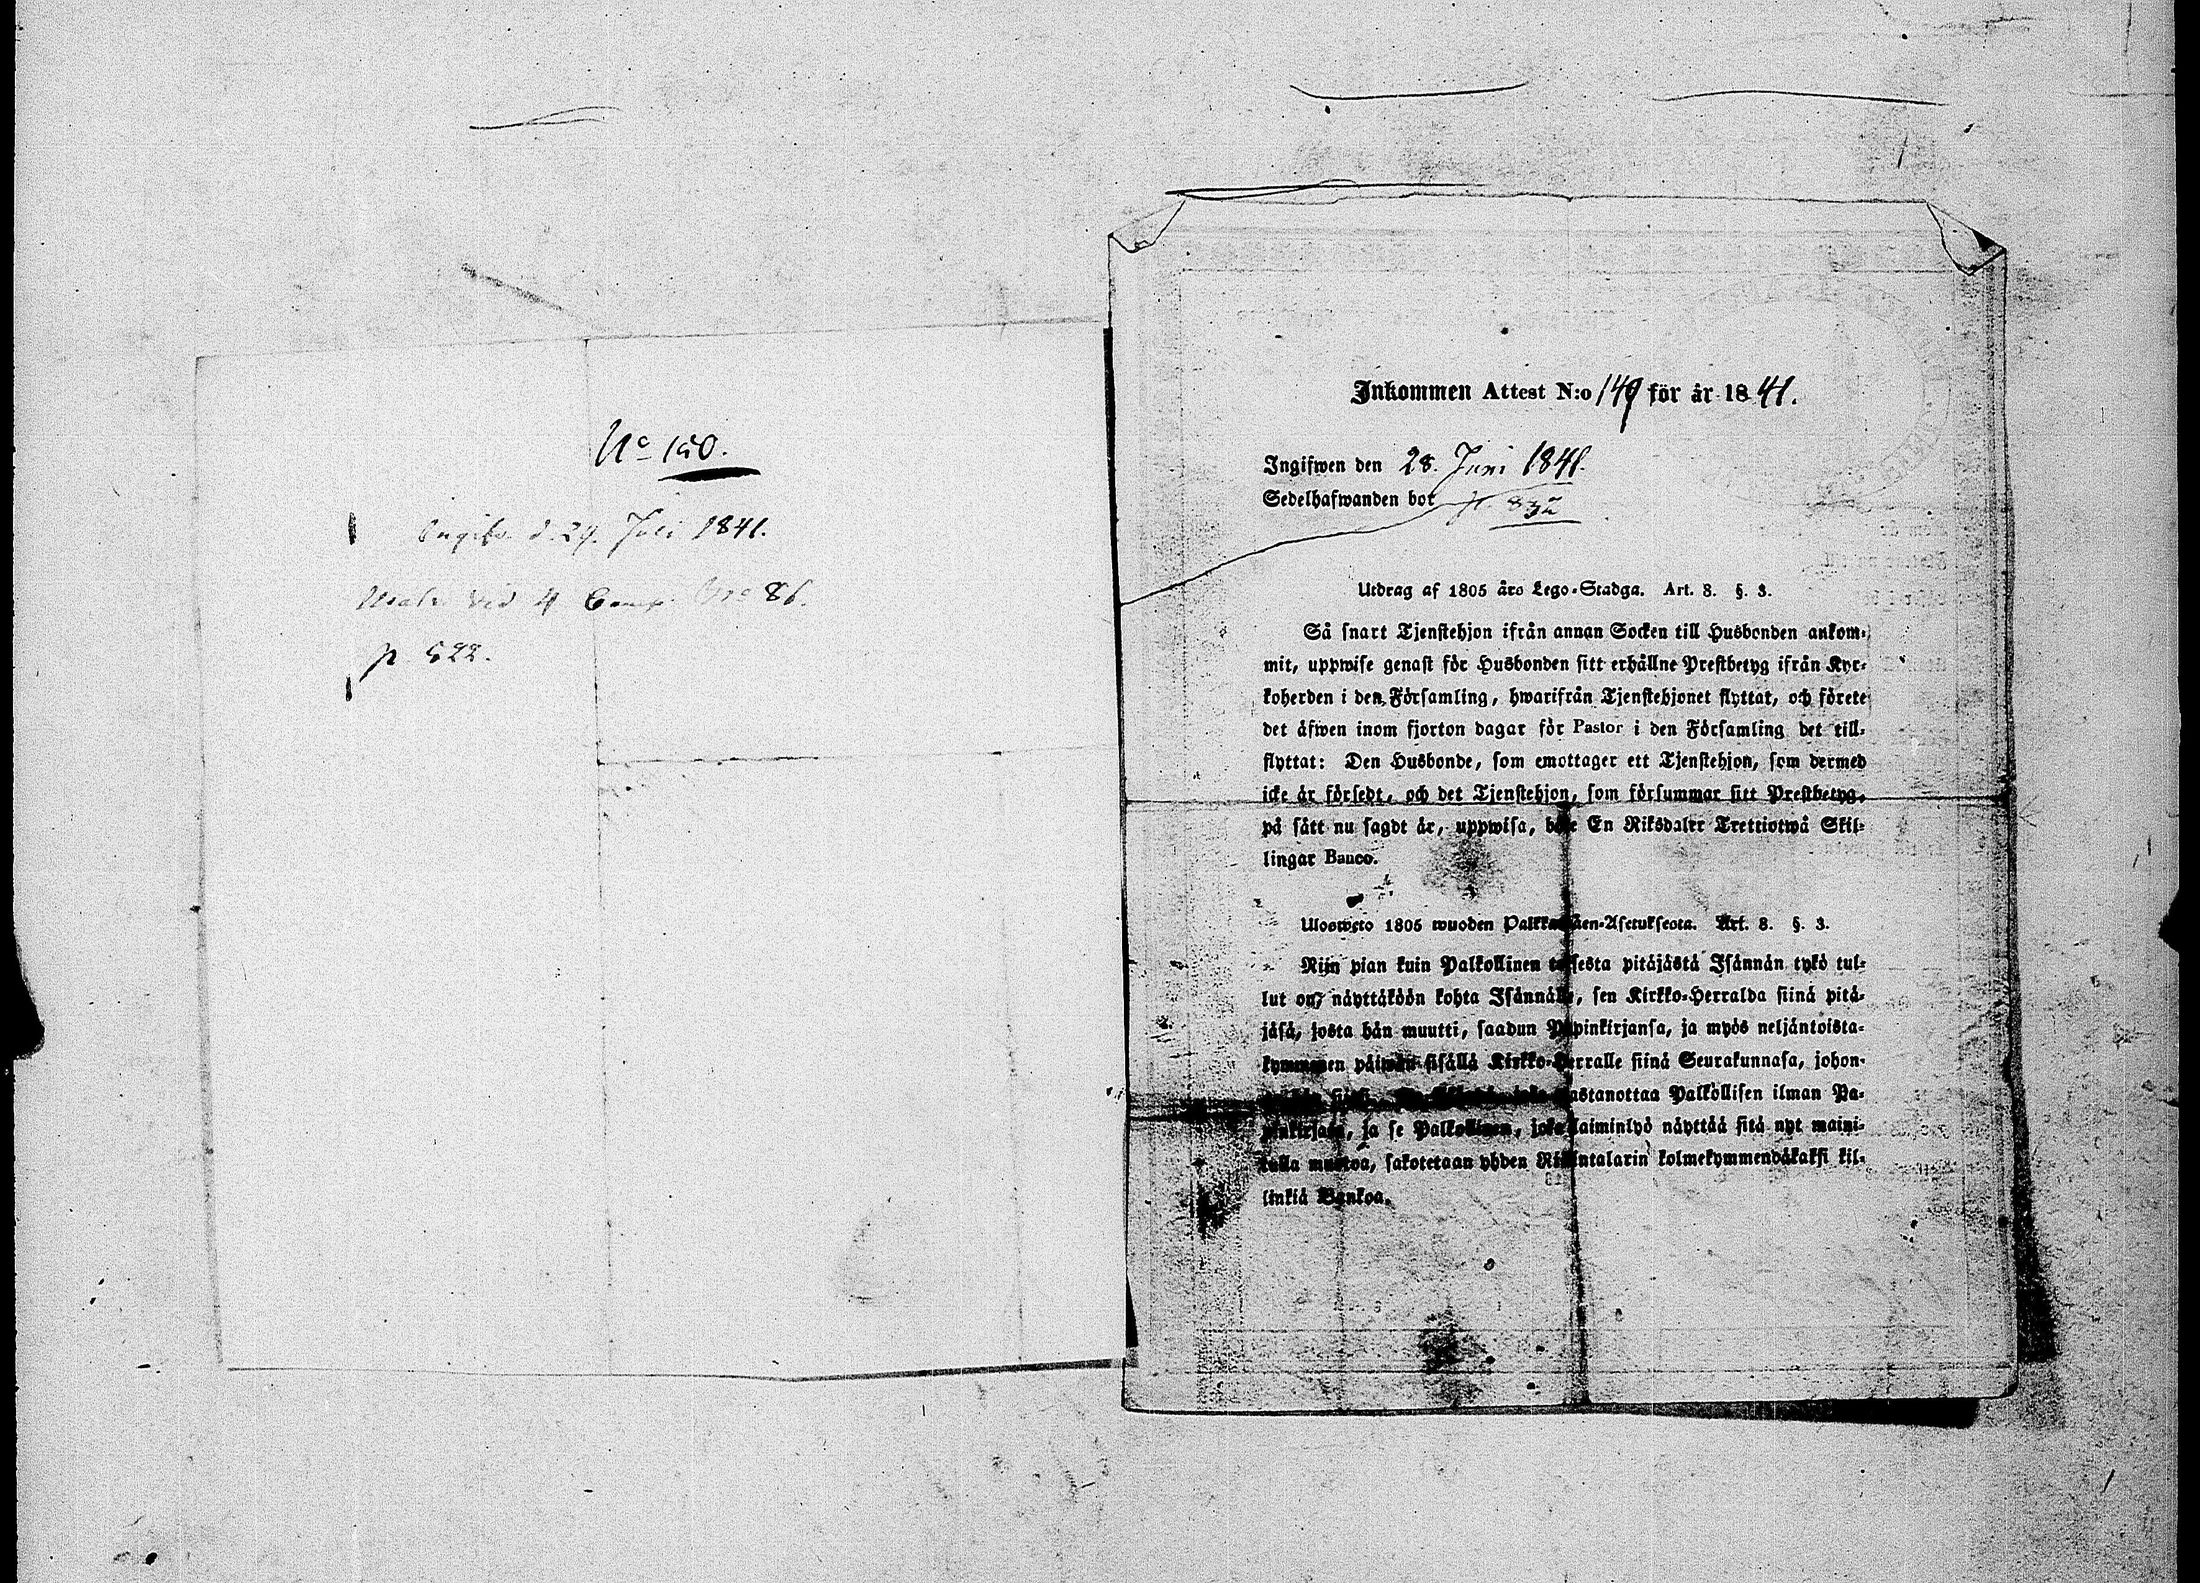 No 150.
Ingifv. d. 29. Juli 1841.
vid 4 Comp. No 86.
p. 522.
Inkommen Attest N:o 149 för år 1841.
Ingifwen den 28. Juni 1841.
Sedelhafwanden bor p. 832
Utdrag af 1805 års Lego-Stadga. Art. 8. §. 3.
Så snart Tjenstehjon ifrån annan Socken till Husbonden ankom-
mit, uppwise genast för Husbonden sitt erhållne Prestbetyg ifrån Kyr-
koherden i den Församling, hwarifrån Tjenstehjonet flyttat, och förete
det äfwen inom fjorton dagar för Pastor i den Församling det till-
flyttat: Den Husbonde, som emottager ett Tjenstehjon, som dermed
icke är försedt, och det Tjenstehjon, som försummar sitt Prestbetyg,
på sätt nu sagdt är, uppwisa, böte En Riksdaler Trettiotwå Skil-
lingar Banco.
Uloswsto 1805 wuoden Palkkawäen-Asetuksesta. Art. 8. §. 3.
Niin pian kuin Palkollinen toisesta pitäjästä Isännän tykö tul-
lut on, näyttäköön kohta Isännälle, sen Kirkko-Herralda siinä pitä-
jäsä, josta hän muutti, saadun Papinkirjansa, ja myös neljäntoista-
kymmenen päiwän sisällä Kirkko-Herralle siinä Seurakunnasa, johon-
wastanottaa Palkollisen ilman Pa-
pinkirjata, ja se Palkollinen, joka laiminlyö näyttää sitä nyt maini-
tulla muotoa, sakotetaan yhden Riksintalarin kolmekymmendäkaksi kil-
linkiä Bankoa.